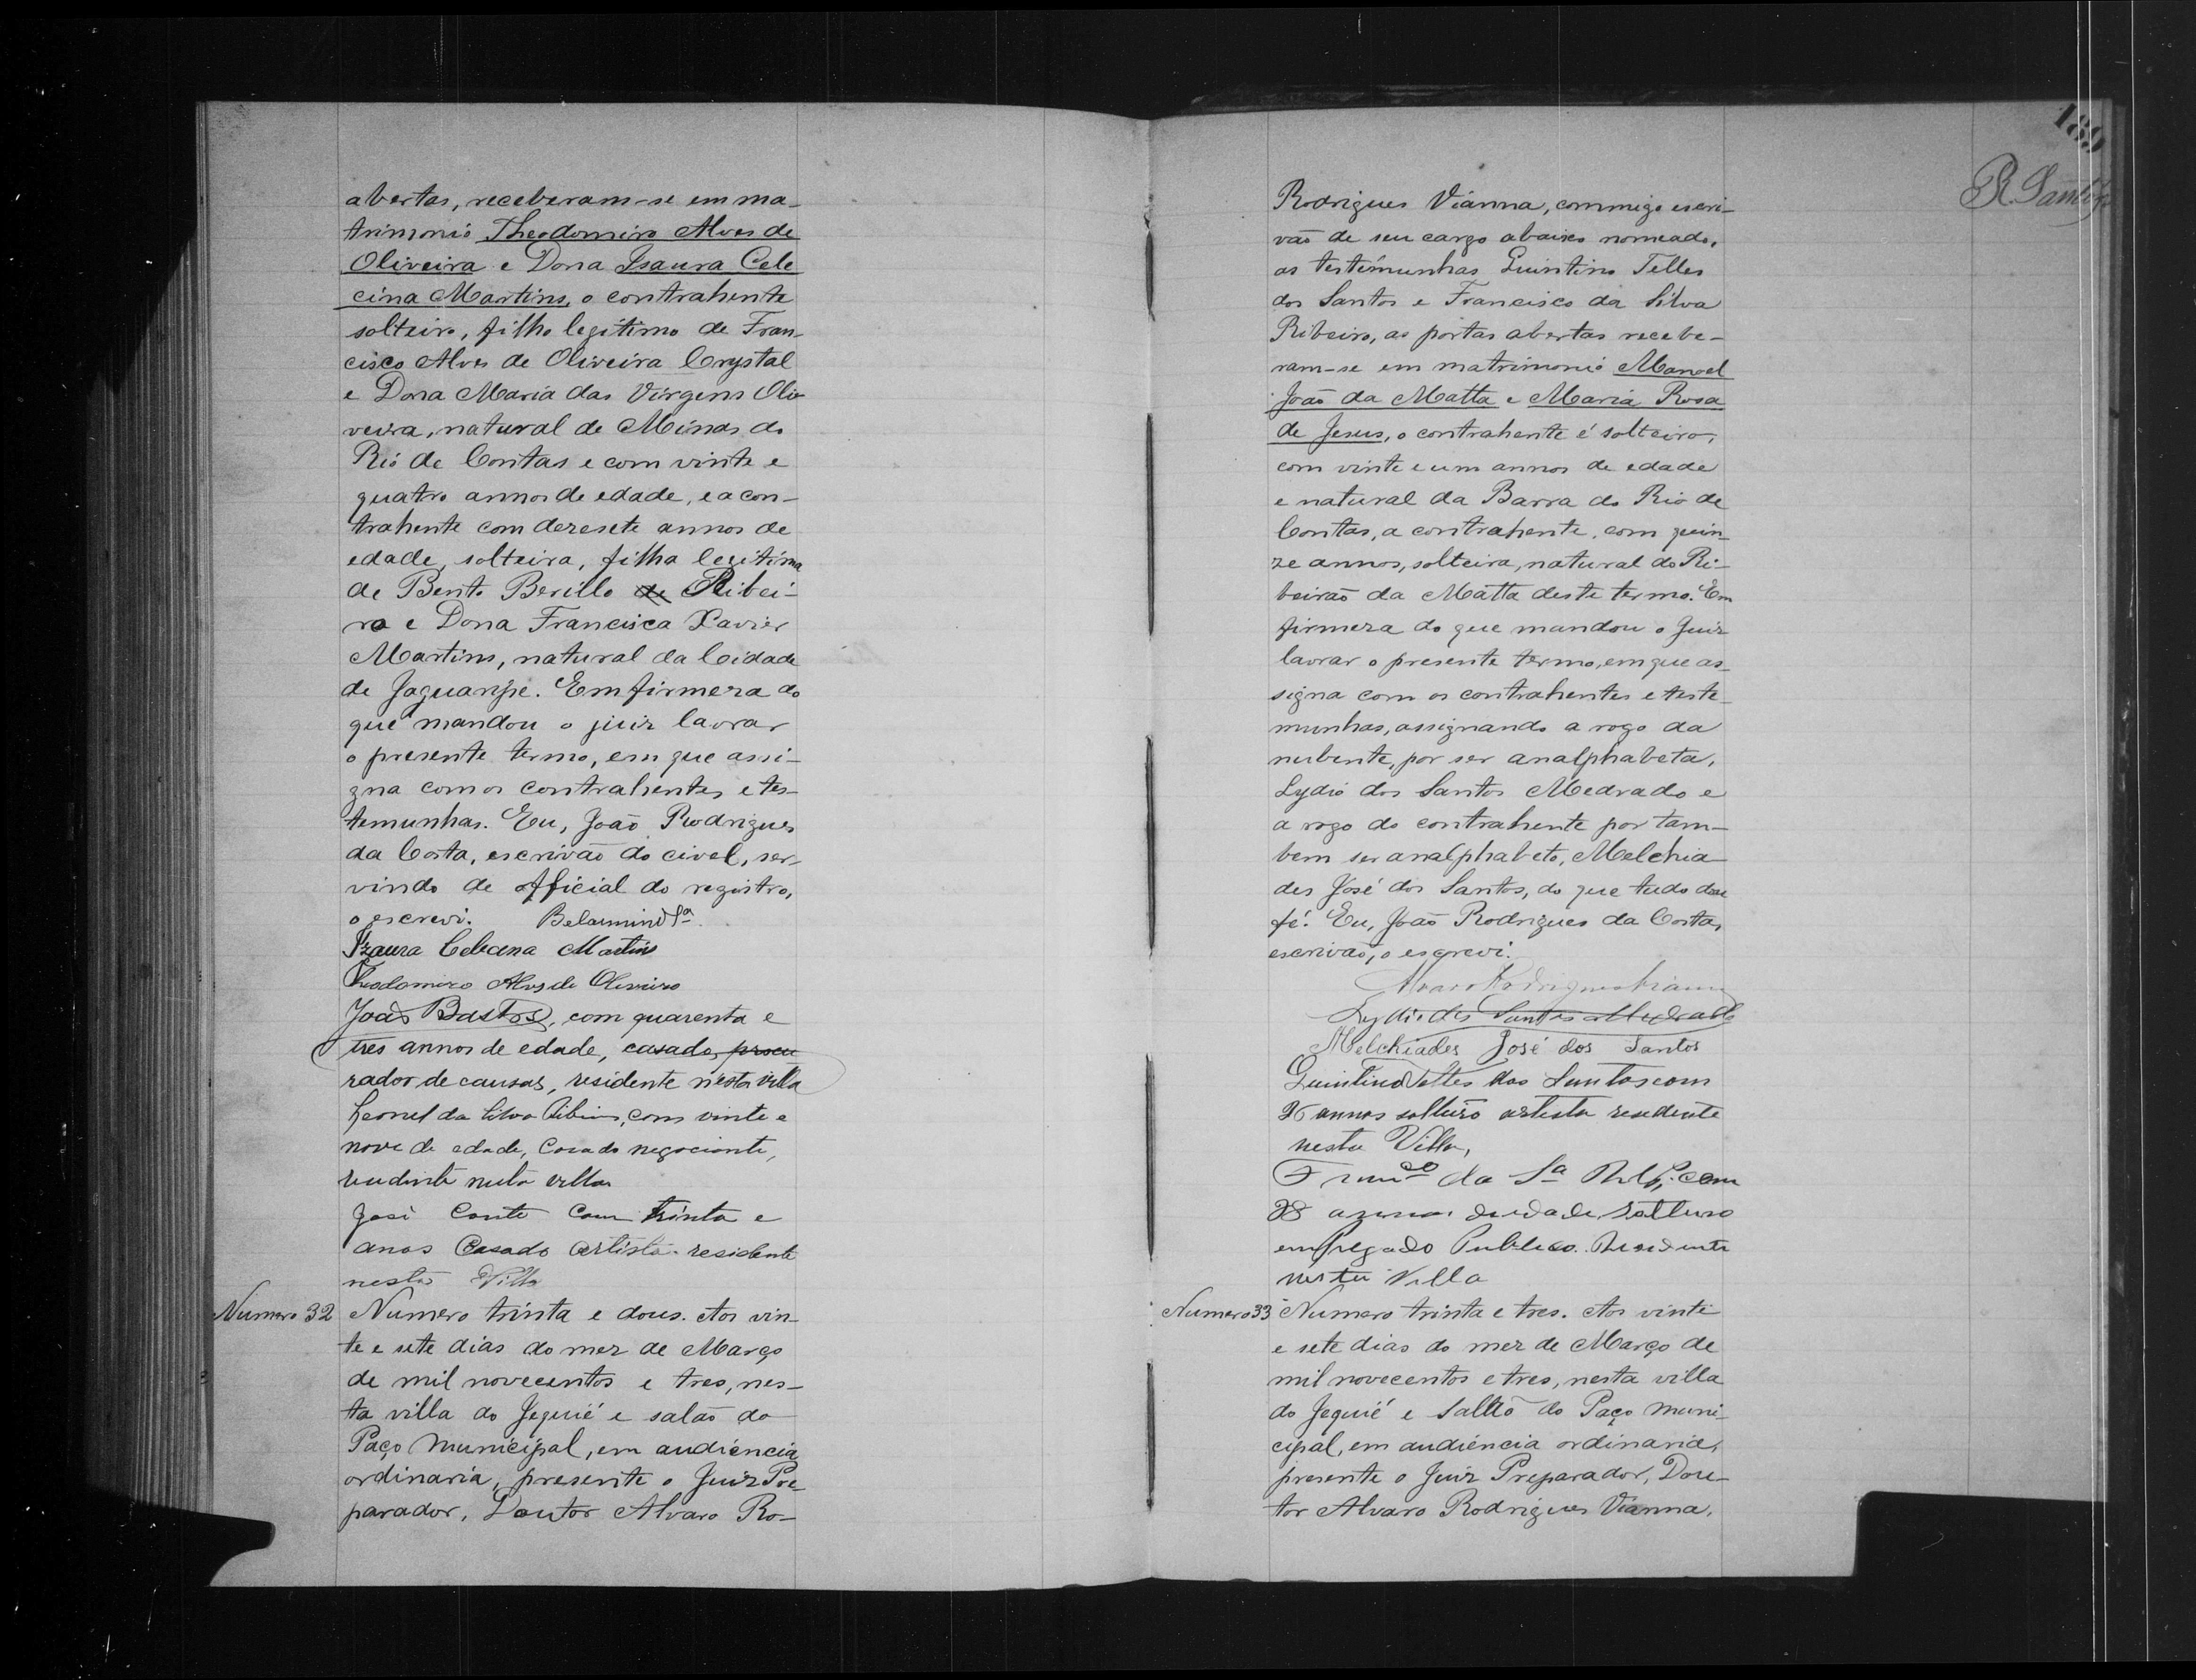 abertas, receberam-se em ma-
trimonio Theodomiro Alves de
Oliveira e Dona Isaura Cele
cina Martins, o contrahente
solteiro, filho legitimo de Fran-
cisco Alves de Oliveira Crystal
e Dona Maria das Virgens Oli-
veira, natural de Minas do
Rio de Contas e com vinte e
quatro annos de edade, e a con-
trahente com dezesete annos de
edade, solteira, filha legitima
de Bento Berillo de Ribei-
ro e Dona Francisca Xavier
Martins, natural da Cidade
de Jaguaripe. Em firmeza do
que mandou o juiz lavrar
o presente termo, em que assi-
gna com os contrahentes e tes-
temunhas. Eu, João Rodrigues
da Costa, escrivão do civel, ser-
vindo de official do registro,
o escrevi. Belarmino
Izaura Celecina Martins
Theodomiro Alves de Oliveira
João Bastos, com quarenta e
tres annos de edade, casado, procu
rador de causas, residente n'esta villa
Leonel da Silva Ribeiro, com vinte e
nove de edade, Casado negociante,
residente nesta villa
José Conte Com trinta e
anos Casado artista residente
nesta Villa
Numero 32 Numero trinta e dous. Aos vin-
te e sete dias do mez de Março
de mil novecentos e tres, nes-
ta villa do Jequié e salão do
Paço Municipal, em audiencia
ordinaria, presente o Juiz Pre-
parador, Doutor Alvaro Ro-
189
R. Santos
Rodrigues Vianna, commigo escri-
vão de seu cargo abaixo nomeado,
as testimunhas Quintino Telles
dos Santos e Francisco da Silva
Ribeiro, as portas abertas recebe-
ram-se em matrimonio Manoel
João da Matta e Maria Rosa
de Jesus, o contrahente é solteiro,
com vinte e um annos de edade
e natural da Barra do Rio de
Contas, a contrahente, com quin-
ze annos, solteira, natural do Ri-
beirão da Matta deste termo. Em
firmeza do que mandou o Juiz
lavrar o presente termo, em que as-
signa com os contrahentes e teste-
munhas, assignando a rogo da
nubente, por ser analphabeta,
Lydio dos Santos Medrado e
a rogo do contrahente por tam-
bem ser analphabeto, Melchia-
des José dos Santos, do que tudo dou
fé. Eu, João Rodrigues da Costa,
escrivão, o escrevi.
Alvaro Rodrigues Vianna
Lydio dos Santos Medrado
Melchiades José dos Santos
Quintino Telles dos Santos com
36 annos solteiro artista residente
nesta Villa,
da Sa com
38 annos de edade, solteiro
empregado Publico. Residente
nesta Villa
Numero 33 Numero trinta e tres. Aos vinte
e sete dias do mez de Março de
mil novecentos e tres, nesta villa
do Jequié e Sallão do Paço Muni-
cipal, em audiencia ordinaria,
presente o Juiz Preparador, Dou-
tor Alvaro Rodrigues Vianna,